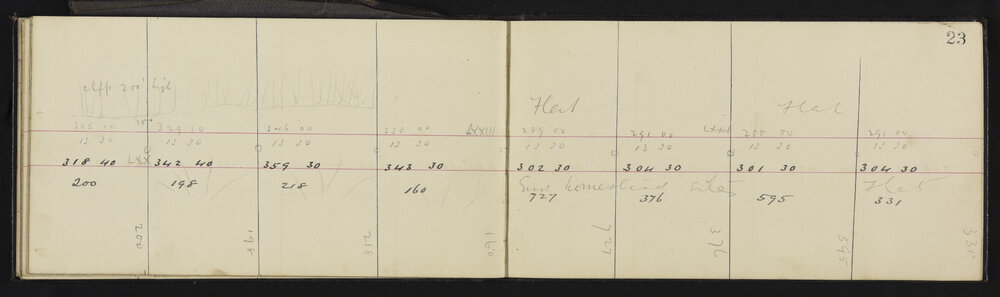 23
cliff 200' high
Flat
Flat
305 10 329 10 346 00 330 00 LXXIII 289 00 291 00 LXXV 288 00 291 00
13 30 13 30 13 30 13 30 13 30 13 30 13 30 13 30
318 40 LXX 342 40 359 30 343 30 302 30 304 30 301 30 304 30
200 198 218 160 Good homestead site Flat
727 376 595 331
200 198 218 160 727 376 595 331